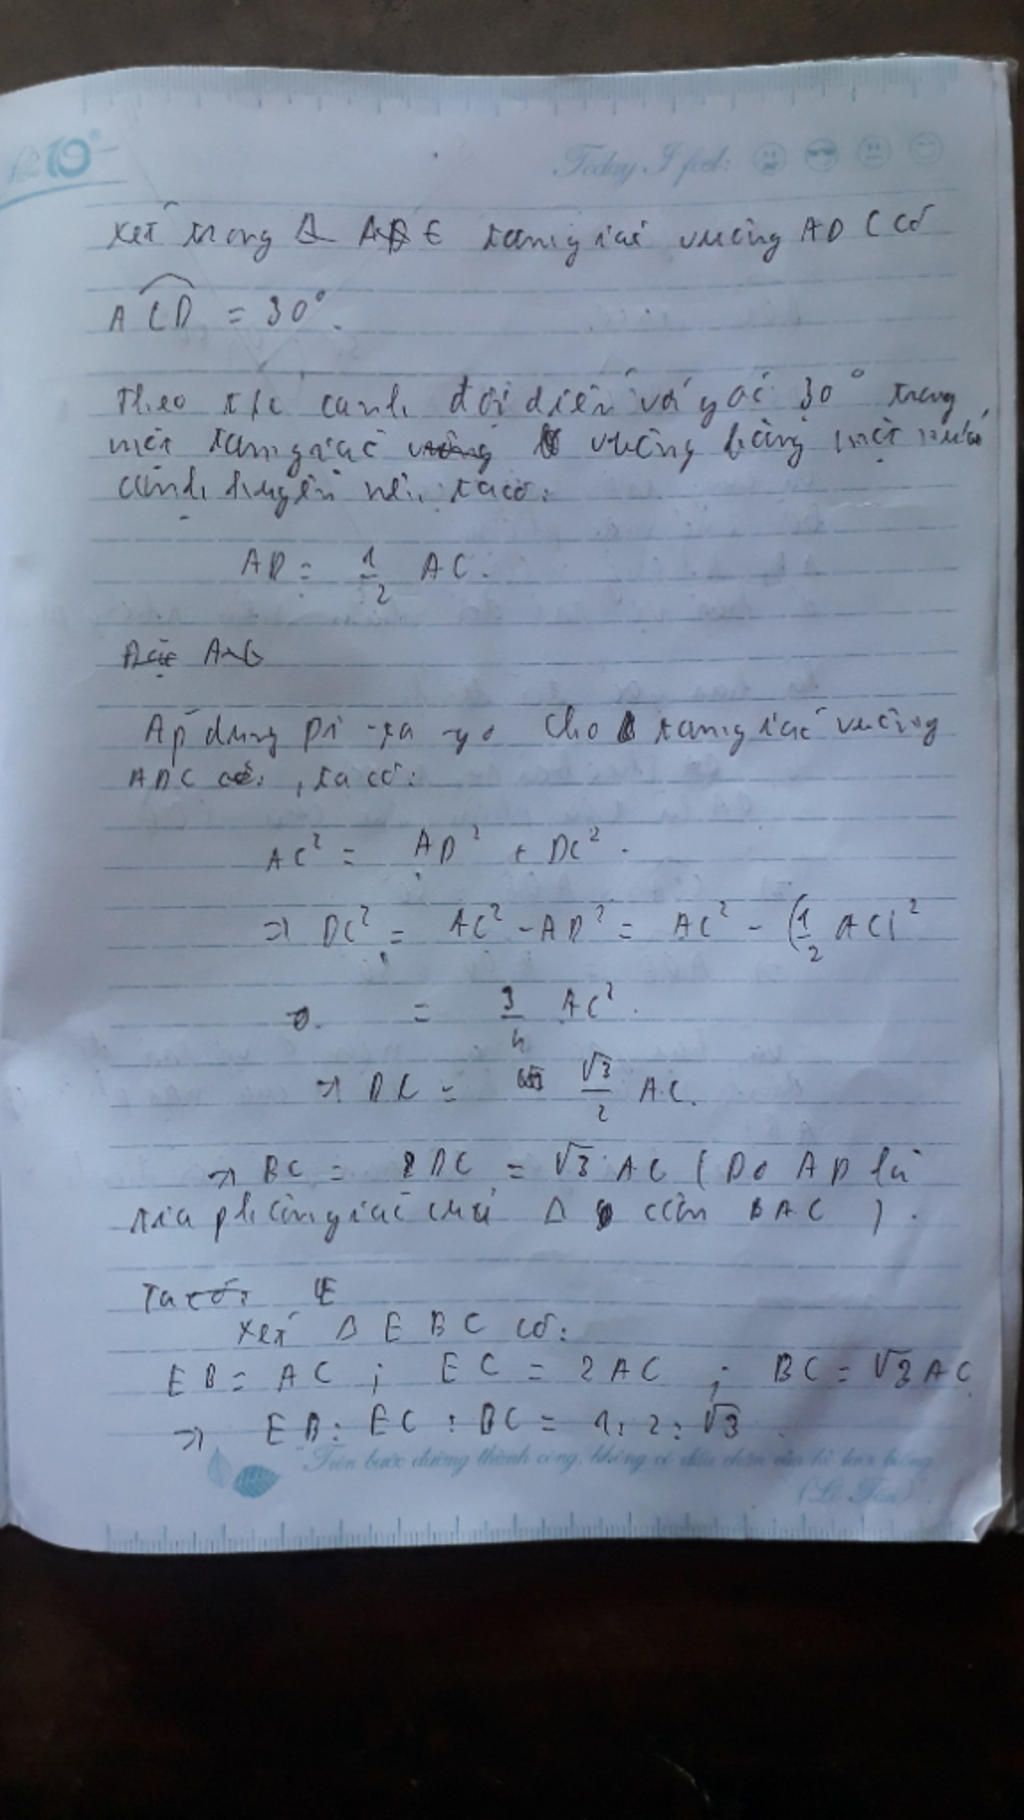 10
Today I feel:
Xét trong Δ ABE tam giác vuông ADC có
ACD = 30°.
Theo t/c cạnh đối diện với góc 30° trong
một tam giác vuông vuông bằng một nửa
cạnh huyền nên ta có:
AD = 1/2 AC.
Áp dụng pi-ta-go cho tam giác vuông
ADC có:, ta có:
AC² = AD² + DC².
=> DC² = AC² - AD² = AC² - (1/2 AC)²
= 3/4 AC².
=> DC = √3/2 AC.
=> BC = 2DC = √3 AC (Do AD là
tia phân giác của Δ cân BAC ).
Ta có: E
Xét Δ EBC có:
EB = AC ; EC = 2AC ; BC = √3 AC
=> EB : EC : BC = 1 : 2 : √3
"Trên bước đường thành công, không có dấu chân của kẻ lười biếng"